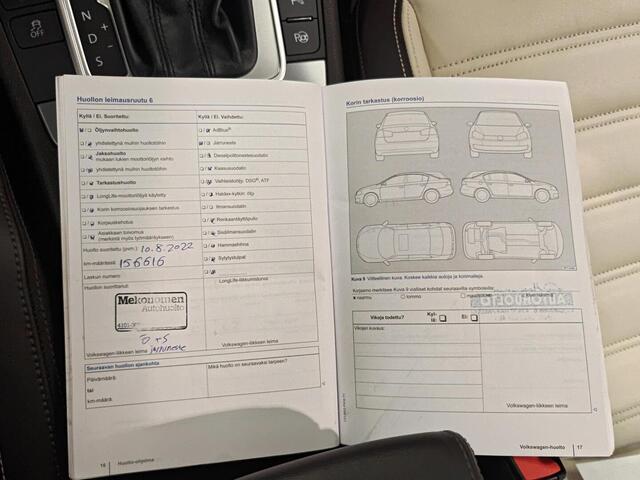 OFF
N
D
S
+
Huollon leimausruutu 6
Kyllä / Ei. Suoritettu:
Kyllä / Ei. Vaihdettu:
Öljynvaihtohuolto
AdBlue®
yhdistettynä muihin huoltotöihin
Jarruneste
Jaksohuolto
mukaan lukien moottoriöljyn vaihto
Dieselpolttonestesuodatin
yhdistettynä muihin huoltotöihin
Kaasusuodatin
Tarkastushuolto
Vaihteistoöljy, DSG®, ATF
LongLife-moottoriöljyä käytetty
Haldex-kytkin öljy
Korin korroosiosuojauksen tarkastus
Ilmansuodatin
Korjauskehotus
Renkaantäyttöpullo
Asiakkaan toivomus
(merkistä myös työmääräykseen)
Sisäilmansuodatin
Huolto suoritettu (pvm.) 10.8.2022
Hammashihna
km-määrässä 156616
Sytytystulpat
Laskun numero:
Huollon suorittanut:
LongLife-liikkumisturva
Mekonomen
Autohuolto
Volkswagen-liikkeen leima jarruneste
Seuraavan huollon ajankohta
Mikä huolto on seuraavaksi tarpeen?
Päivämäärä:
tai
km-määrä:
16 Huolto-ohjelma
Korin tarkastus (korroosio)
Kuva 9 Viitteellinen kuva. Koskee kaikkia autoja ja korimalleja.
Korjaamo merkitsee Kuva 9 vialliset kohdat seuraavilla symboleilla:
naarmu
lommo
AUTOHUOLTO
Vikoja todettu?
Kyl-
lä:
Ei:
Vikojen kuvaus:
Volkswagen-liikkeen leima
Volkswagen-huolto 17